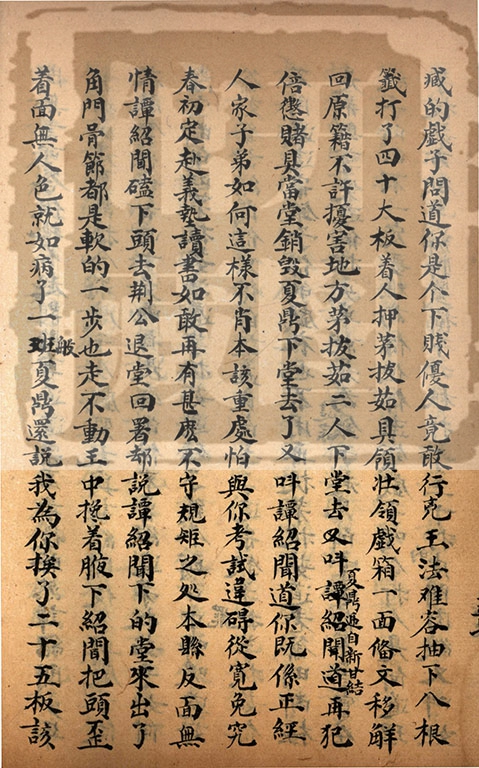 臧的戲子問道你是个下賤優人竟敢行兇王法难容抽下八根
籤打了四十大板着人押茅拔茹具領壯領戲箱一面俻文移觧
回原籍不許擾害地方茅拔茹二人下堂去又呌譚紹聞道再犯
夏鼎遞自新甘結
倍懲賭具當堂銷毀夏鼎下堂去了又呌譚紹聞道你既係正經
人家子弟如何這樣不肖本該重處怕與你考試違碍從寬免究
春初定赴義塾讀書如敢再有甚庅不守規矩之処本縣反面無
情譚紹聞磕下頭去荆公退堂回署却説譚紹聞下的堂來出了
角門骨節都是軟的一步也走不動王中挽着腋下紹聞把頭歪
着面無人色就如病了一班般夏鼎還説我為你挨了二十五板該